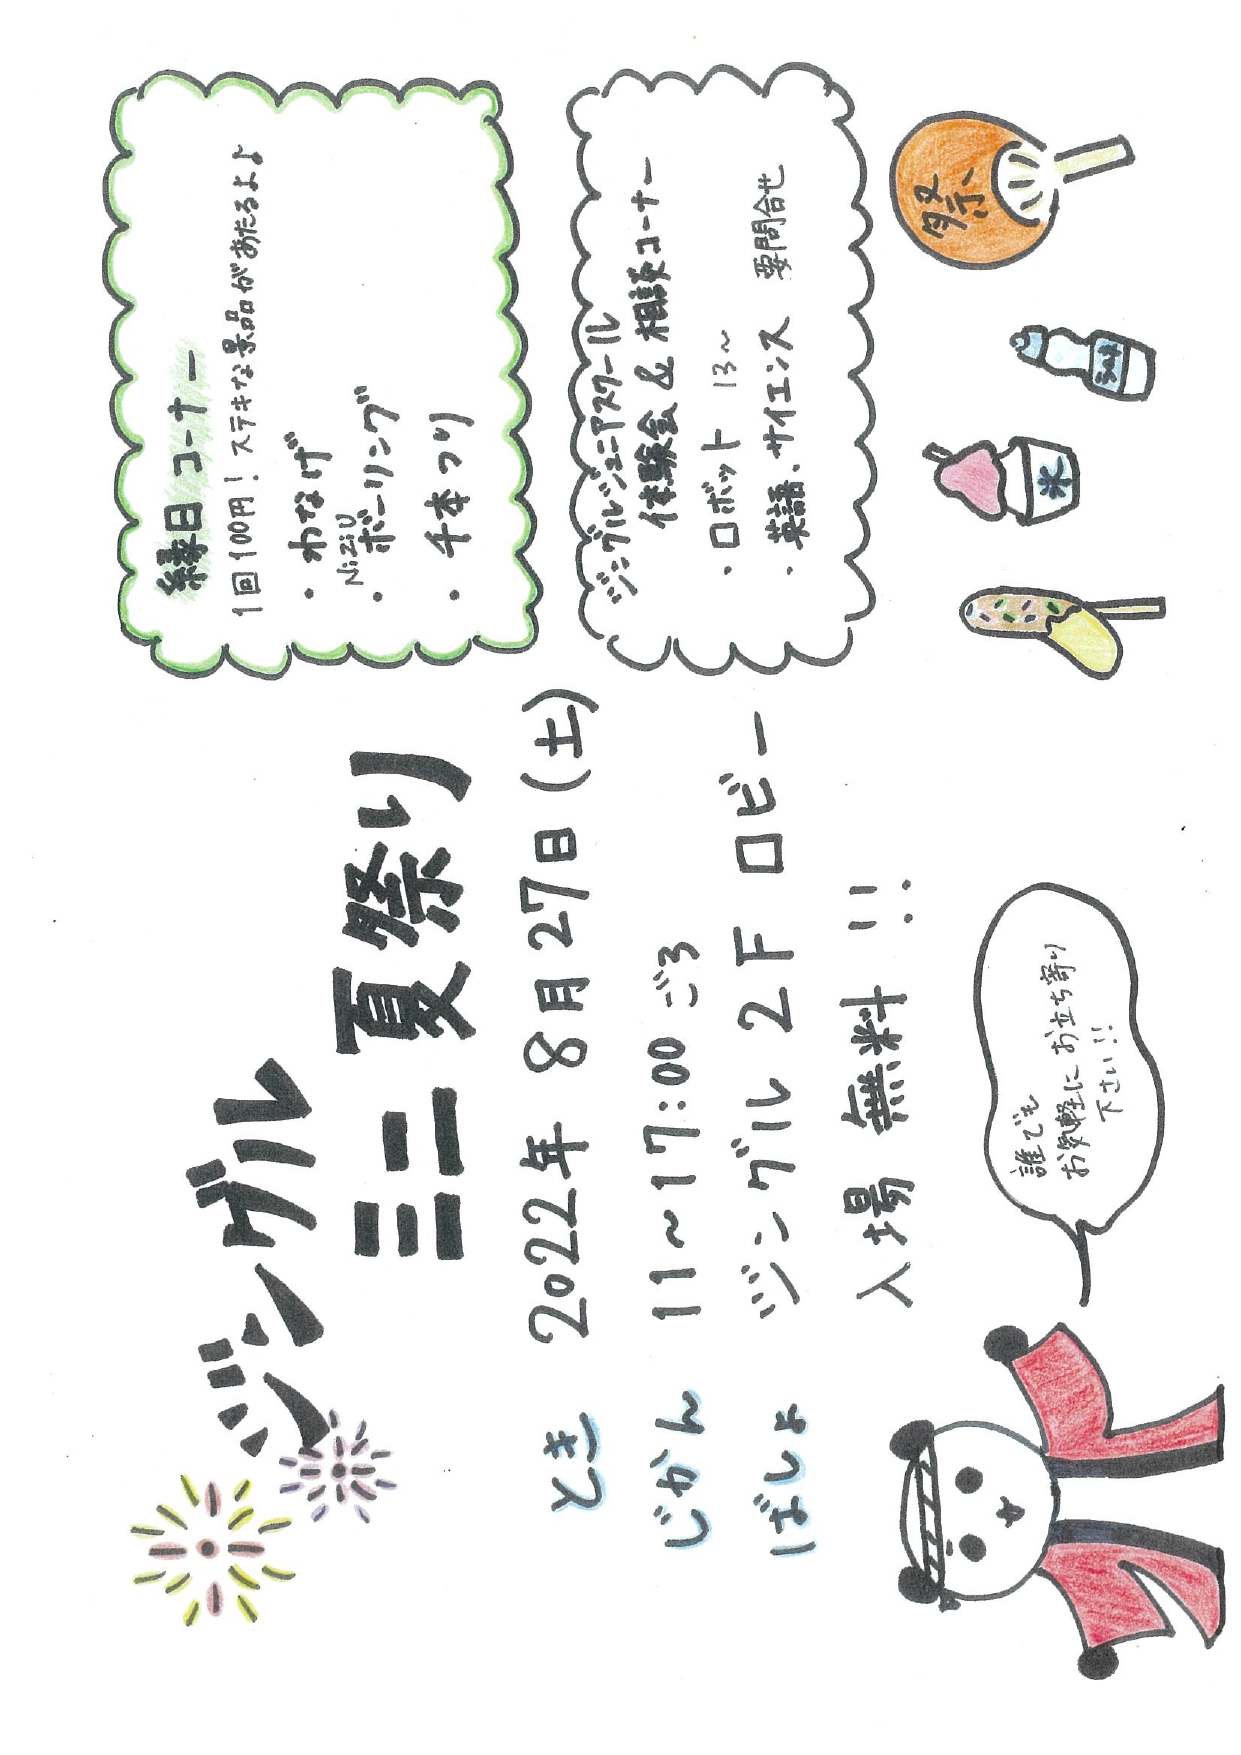 ジングル
ミニ 夏祭り
とき 2022年 8月27日(土)
じかん 11~17:00 ごろ
ばしょ ジングル 2F ロビー
入場 無料 !!
誰でも
お気軽に お立ち寄り
下さい!!
縁日コーナー
1回100円! ステキな景品があたるよ♪
・わなげ
・NiziUボーリング
・千本つり
ジングルジュニアスクール
体験会 & 相談コーナー
・ロボット 13~
・英語、サイエンス 要問合せ
祭
氷